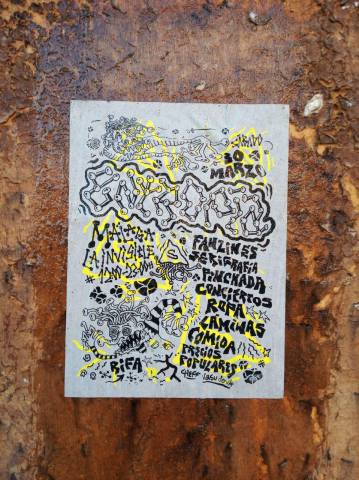 SÁBADO
30
MARZO
MALAGA
LA INVISIBLE
FANZINES
SERIGRAFIA
PINCHADA
CONCIERTOS
ROPA
LAMINAS
COMIDA
PRECIOS
POPULARES
RIFA